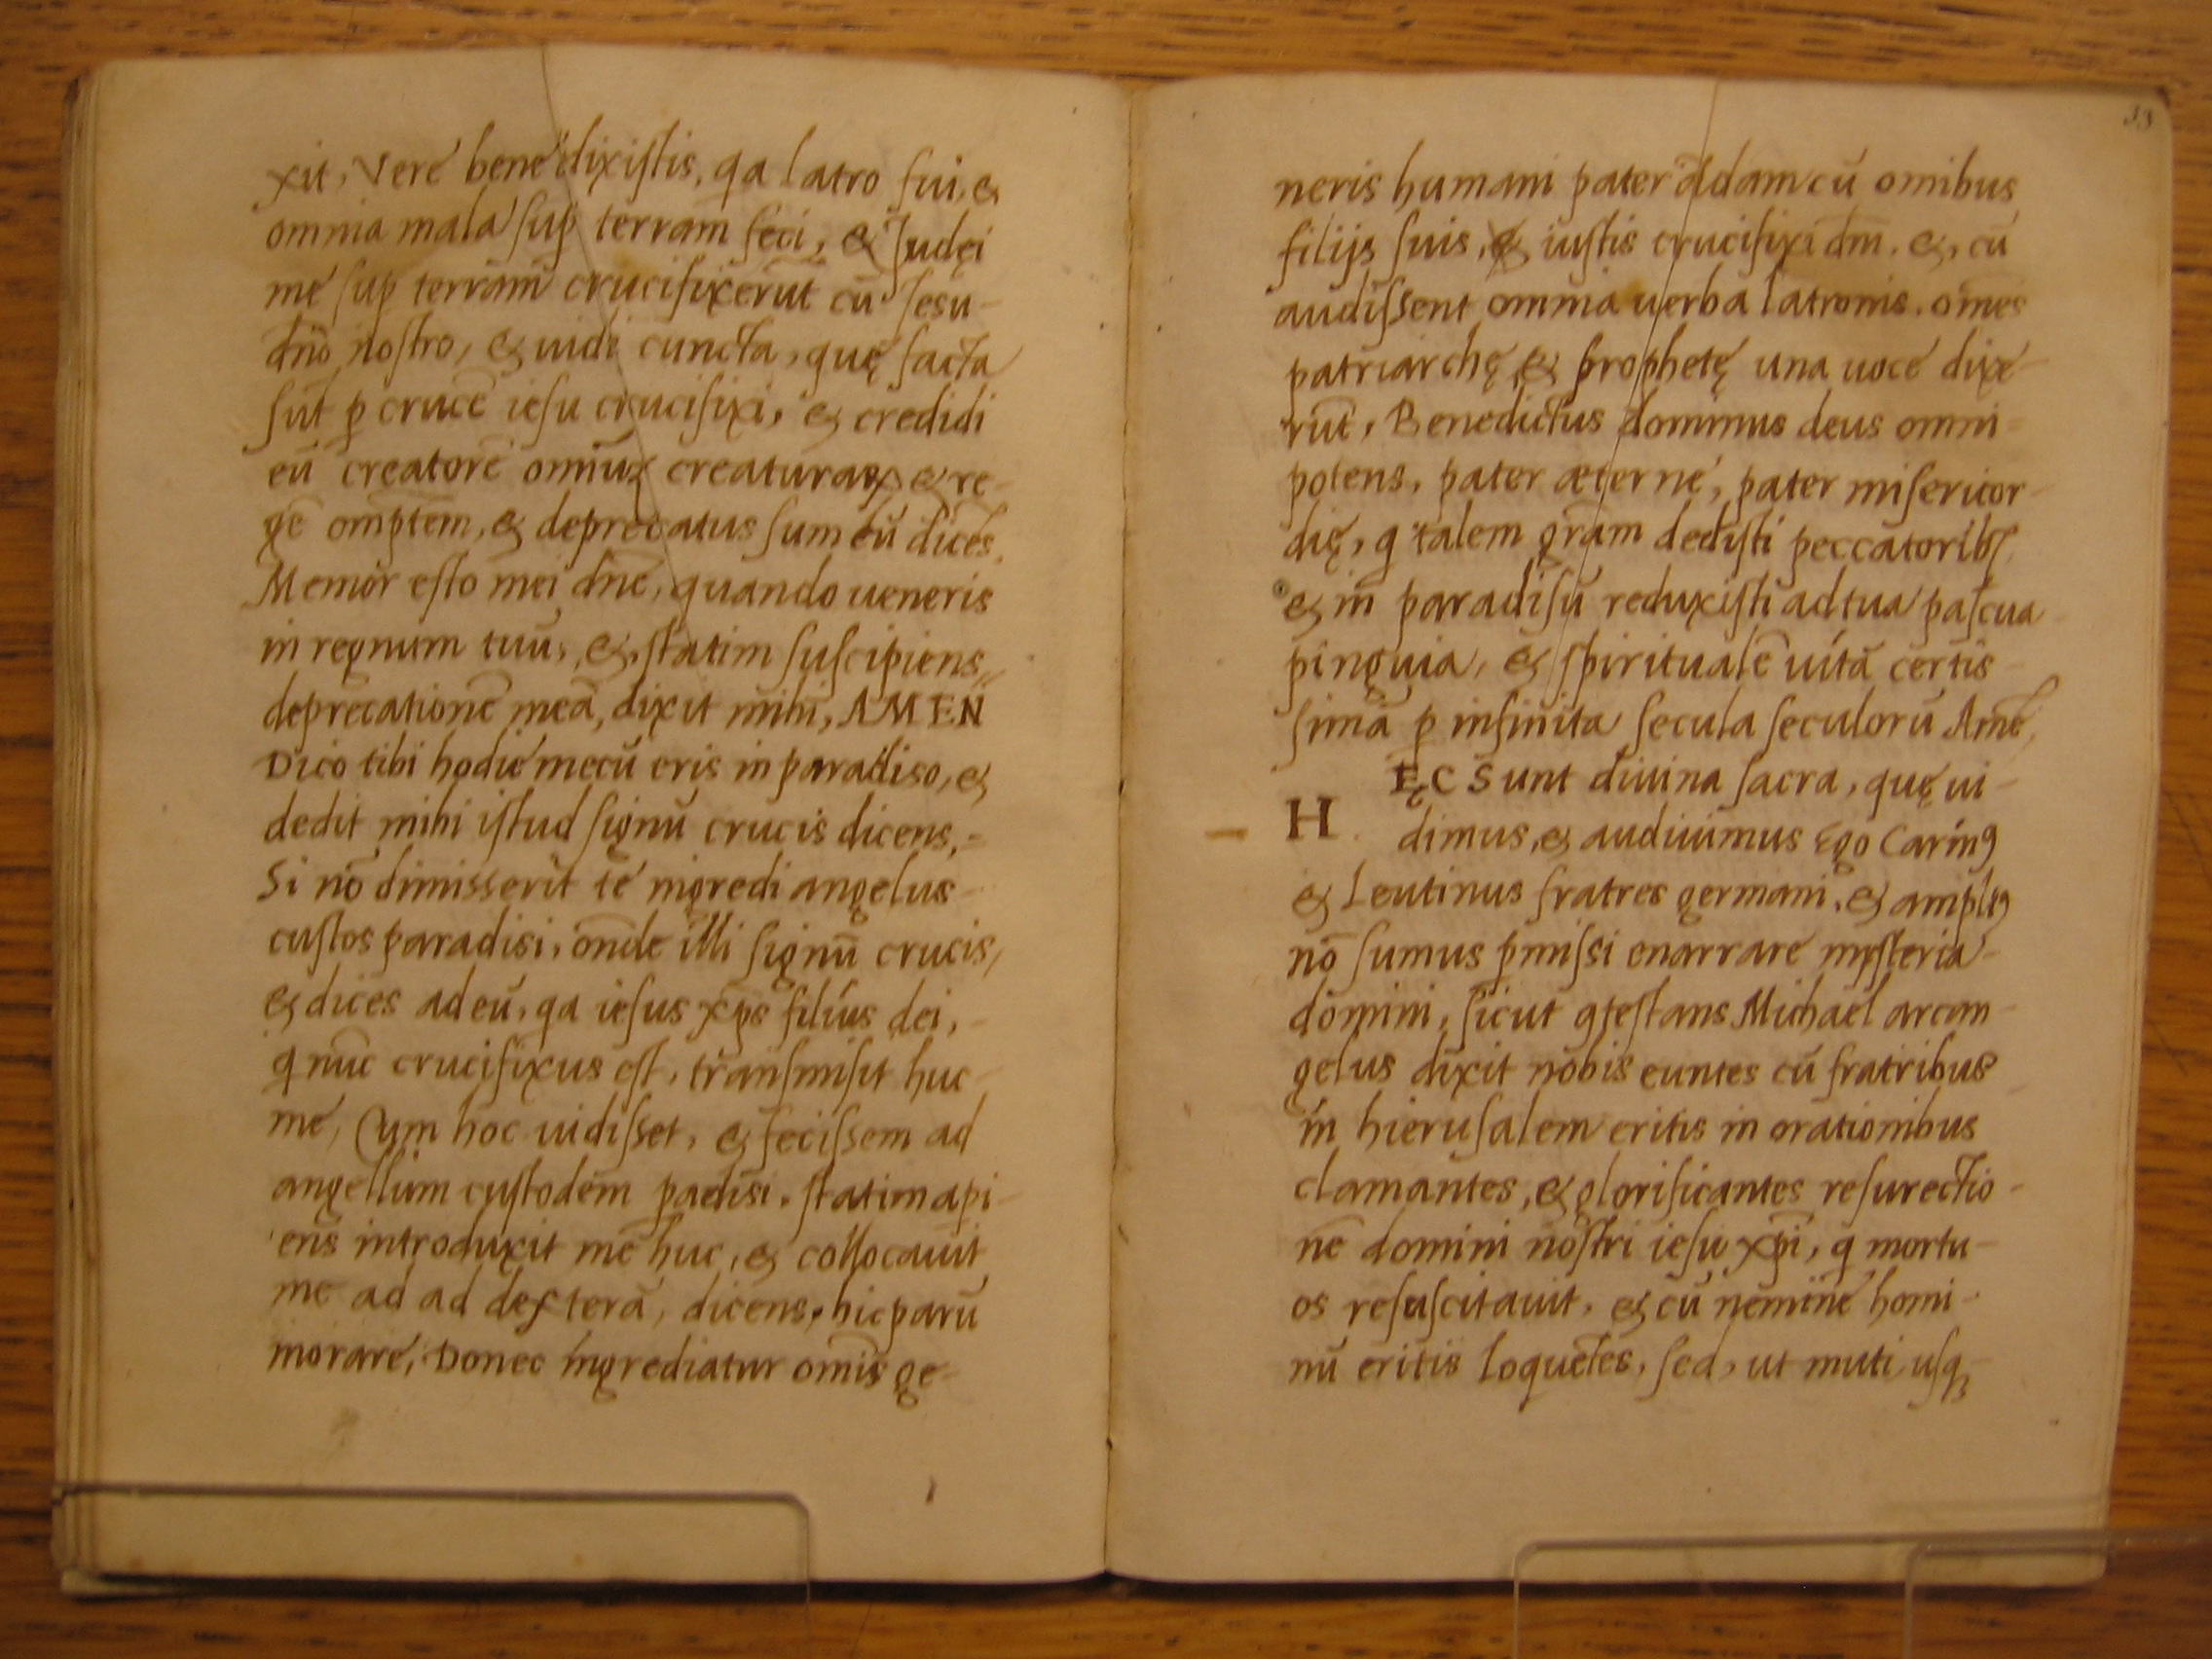 xit, Vere bene dixistis, qa latro fui, &
omnia mala sup terram feci, & Judęi
me sup terram crucifixerūt cū Jesu
dn̄o nostro, & uidi cuncta, quę facta
sūt p crucē iesu crucifixi, & credidi
eū creatorē omniuꝝ creaturaꝝ & re-
gē om̄ptem, & deprecatus sum eū dicēs,
Memor esto mei dn̄e, quando ueneris
in regnum tuū, & statim suscipiens
deprecationē meā, dixit mihi, AMEN
Dico tibi hodie mecū eris in paradiso, &
dedit mihi istud signū crucis dicens,
Si nō dimisserit te ingredi angelus
custos paradisi, on̄de illi signū crucis,
& dices ad eū, qa iesus xp̄s filius dei,
q nūc crucifixus est, transmisit huc
me, Cum hoc uidisset, & fecissem ad
angellum custodem padisi, statim api-
ens introduxit me huc, & collocauit
me ad ad dexterā, dicens, hic parū
morare, Donec ingrediatur omīs ge-
33
neris humani pater adam cū omibus
filijs suis, & iustis crucifixi dm̄. &, cū
audissent omnia uerba latronis, om̄es
patriarchę & prophetę una uoce dixe-
rūt, Benedictus dominus deus omni-
potens, pater æterne, pater misericor-
dię, q talem gr̄am dedisti peccatoribꝫ,
& in paradisū reduxisti ad tua pascua
pinguia, & spiritualē uitā certis-
simā p infinita secula seculorū Amē,
HĘC Sunt diuina sacra, quę ui-
dimus, & audiuimus Ego Carinꝯ
& Leutinus fratres germani, & ampliꝯ
nō sumus pmissi enarrare mysteria
domini, sicut ꝯtestans Michael arcan-
gelus dixit nobis euntes cū fratribus
in hierusalem eritis in orationibus
clamantes, & glorificantes resurectio-
nē domini nostri iesu xp̄i, q mortu-
os resuscitauit, & cū nemine homi-
nū eritis loquētes, sed, ut muti usqꝫ